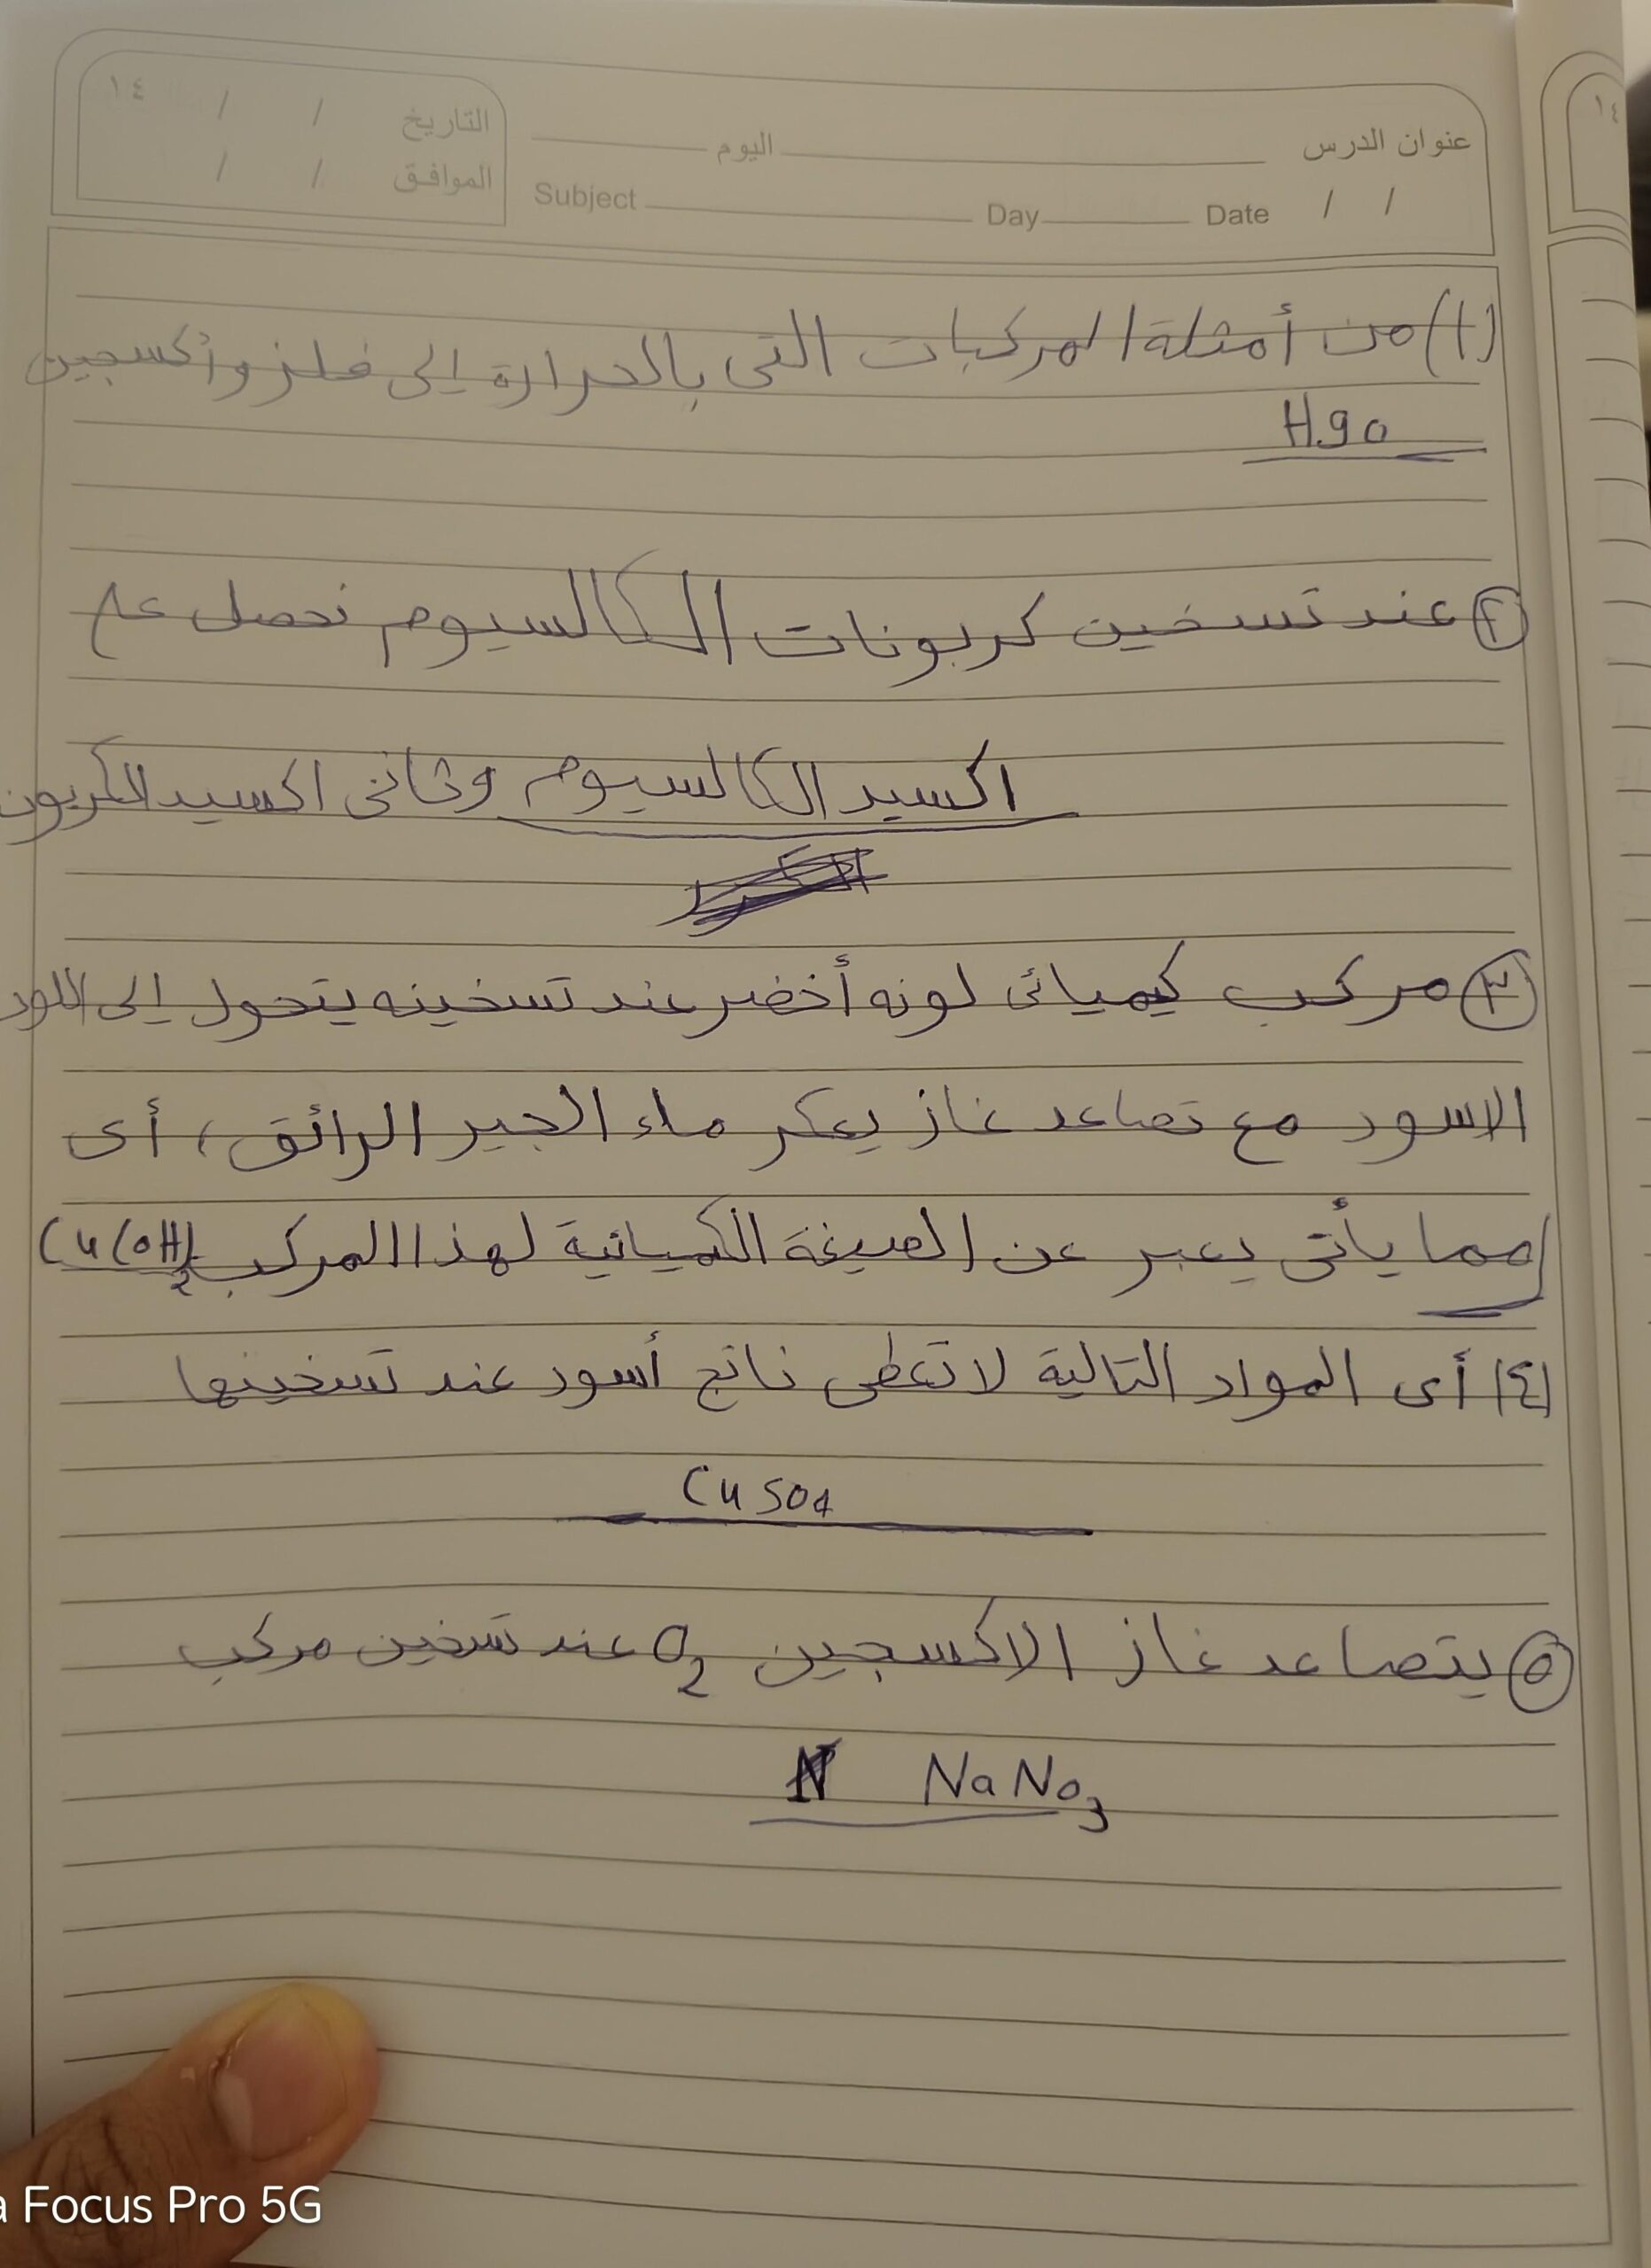 عنوان الدرس اليوم التاريخ / / ١٤
Subject Day Date / / الموافق / /
(١) من أمثلة المركبات التى بالحرارة إلى فلز وأكسجين
Hgo
٢ عند تسخين كربونات الكالسيوم نحصل على
اكسيد الكالسيوم وثانى اكسيد الكربون
٣ مركب كيميائى لونه أخضر عند تسخينه يتحول إلى اللون
الاسود مع تصاعد غاز يعكر ماء الجير الرائق، أى
مما يأتى يعبر عن الصيغة الكميائية لهذا المركب Cu(OH)2
(٤) أى المواد التالية لا تعطى ناتج أسود عند تسخينها
CuSO4
٥ يتصاعد غاز الاكسجين O2 عند تسخين مركب
NaNo3
a Focus Pro 5G